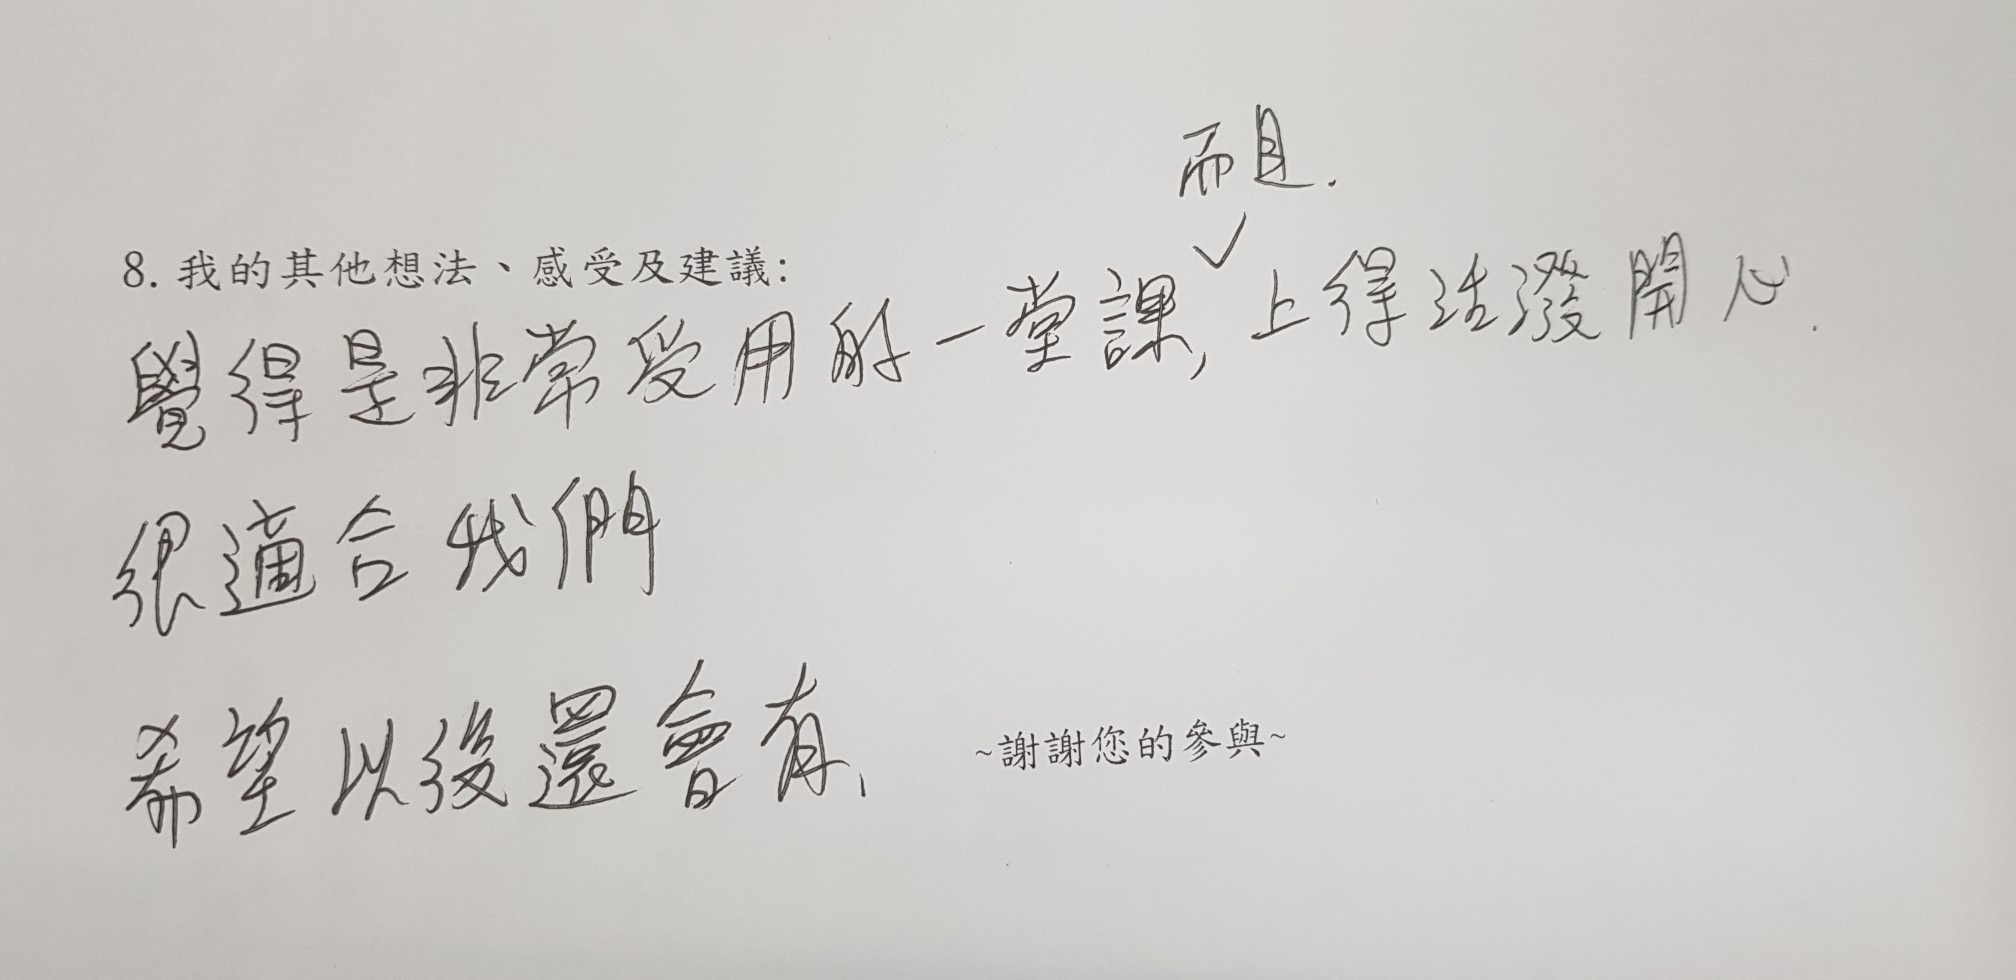 而且.
8. 我的其他想法、感受及建議:
覺得是非常受用的一堂課, 上得活潑開心.
很適合我們
希望以後還會有、
~謝謝您的參與~